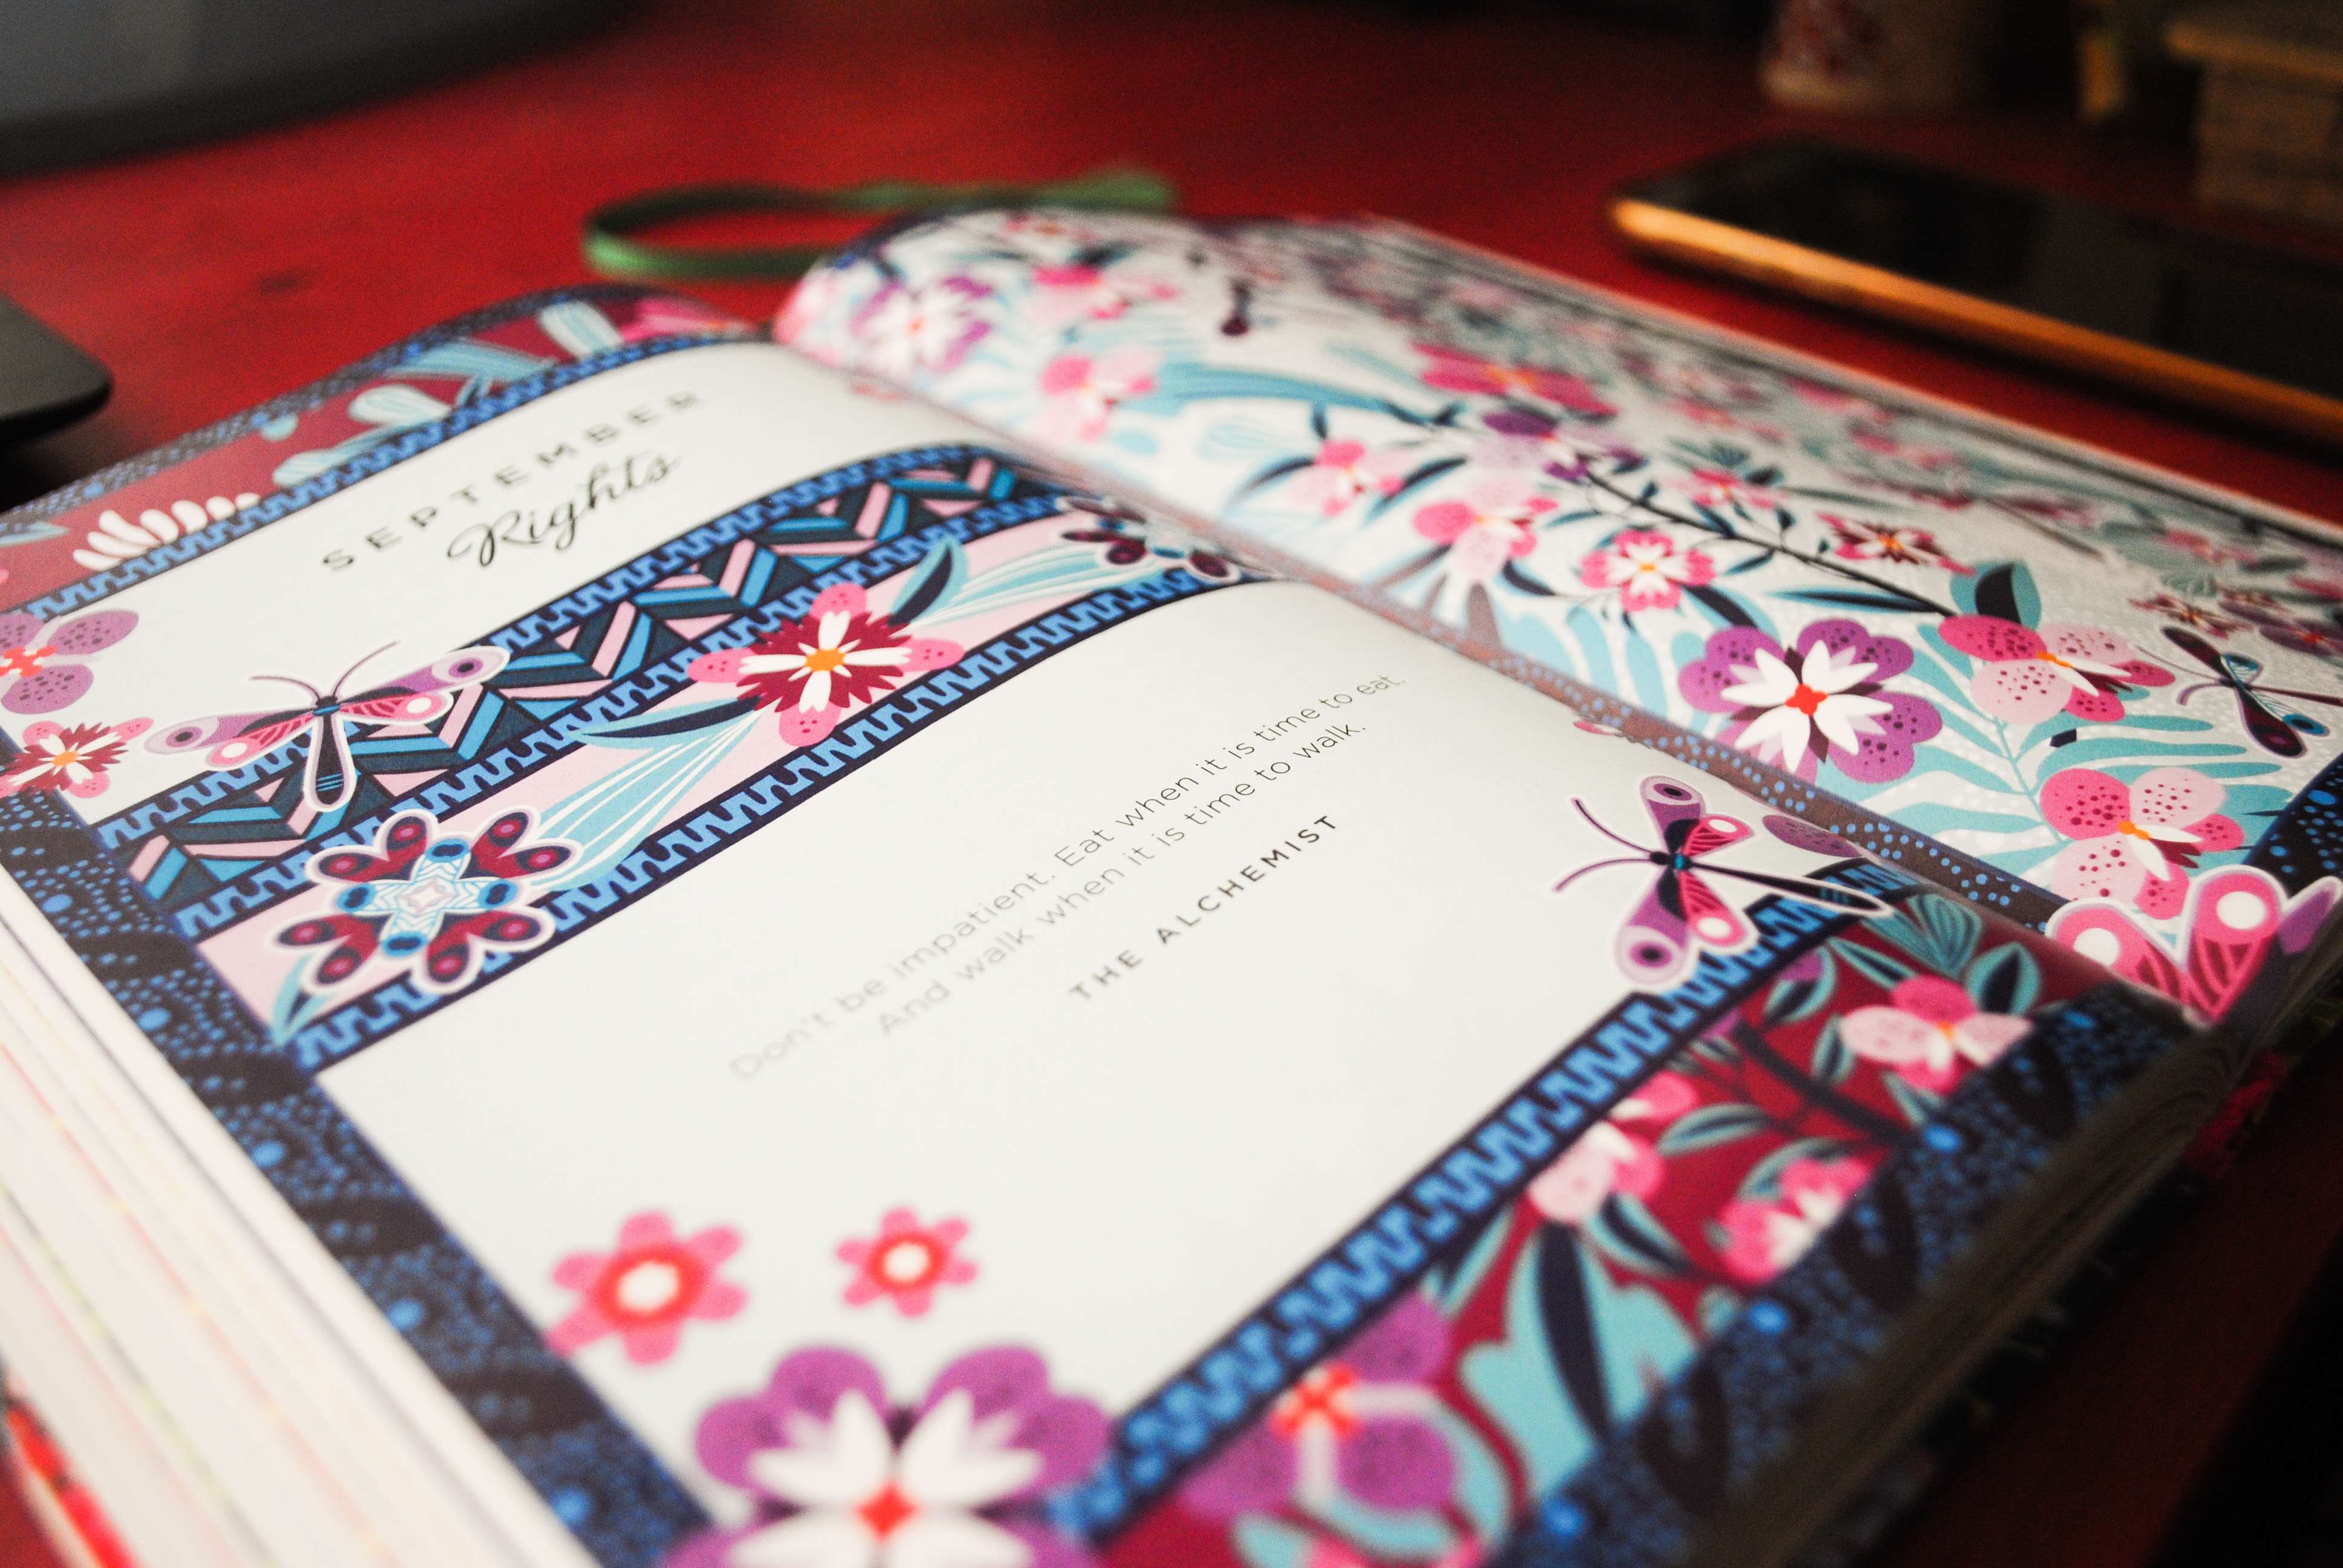 SEPTEMBER
Rights
Don't be impatient. Eat when it is time to eat.
And walk when it is time to walk.
THE ALCHEMIST